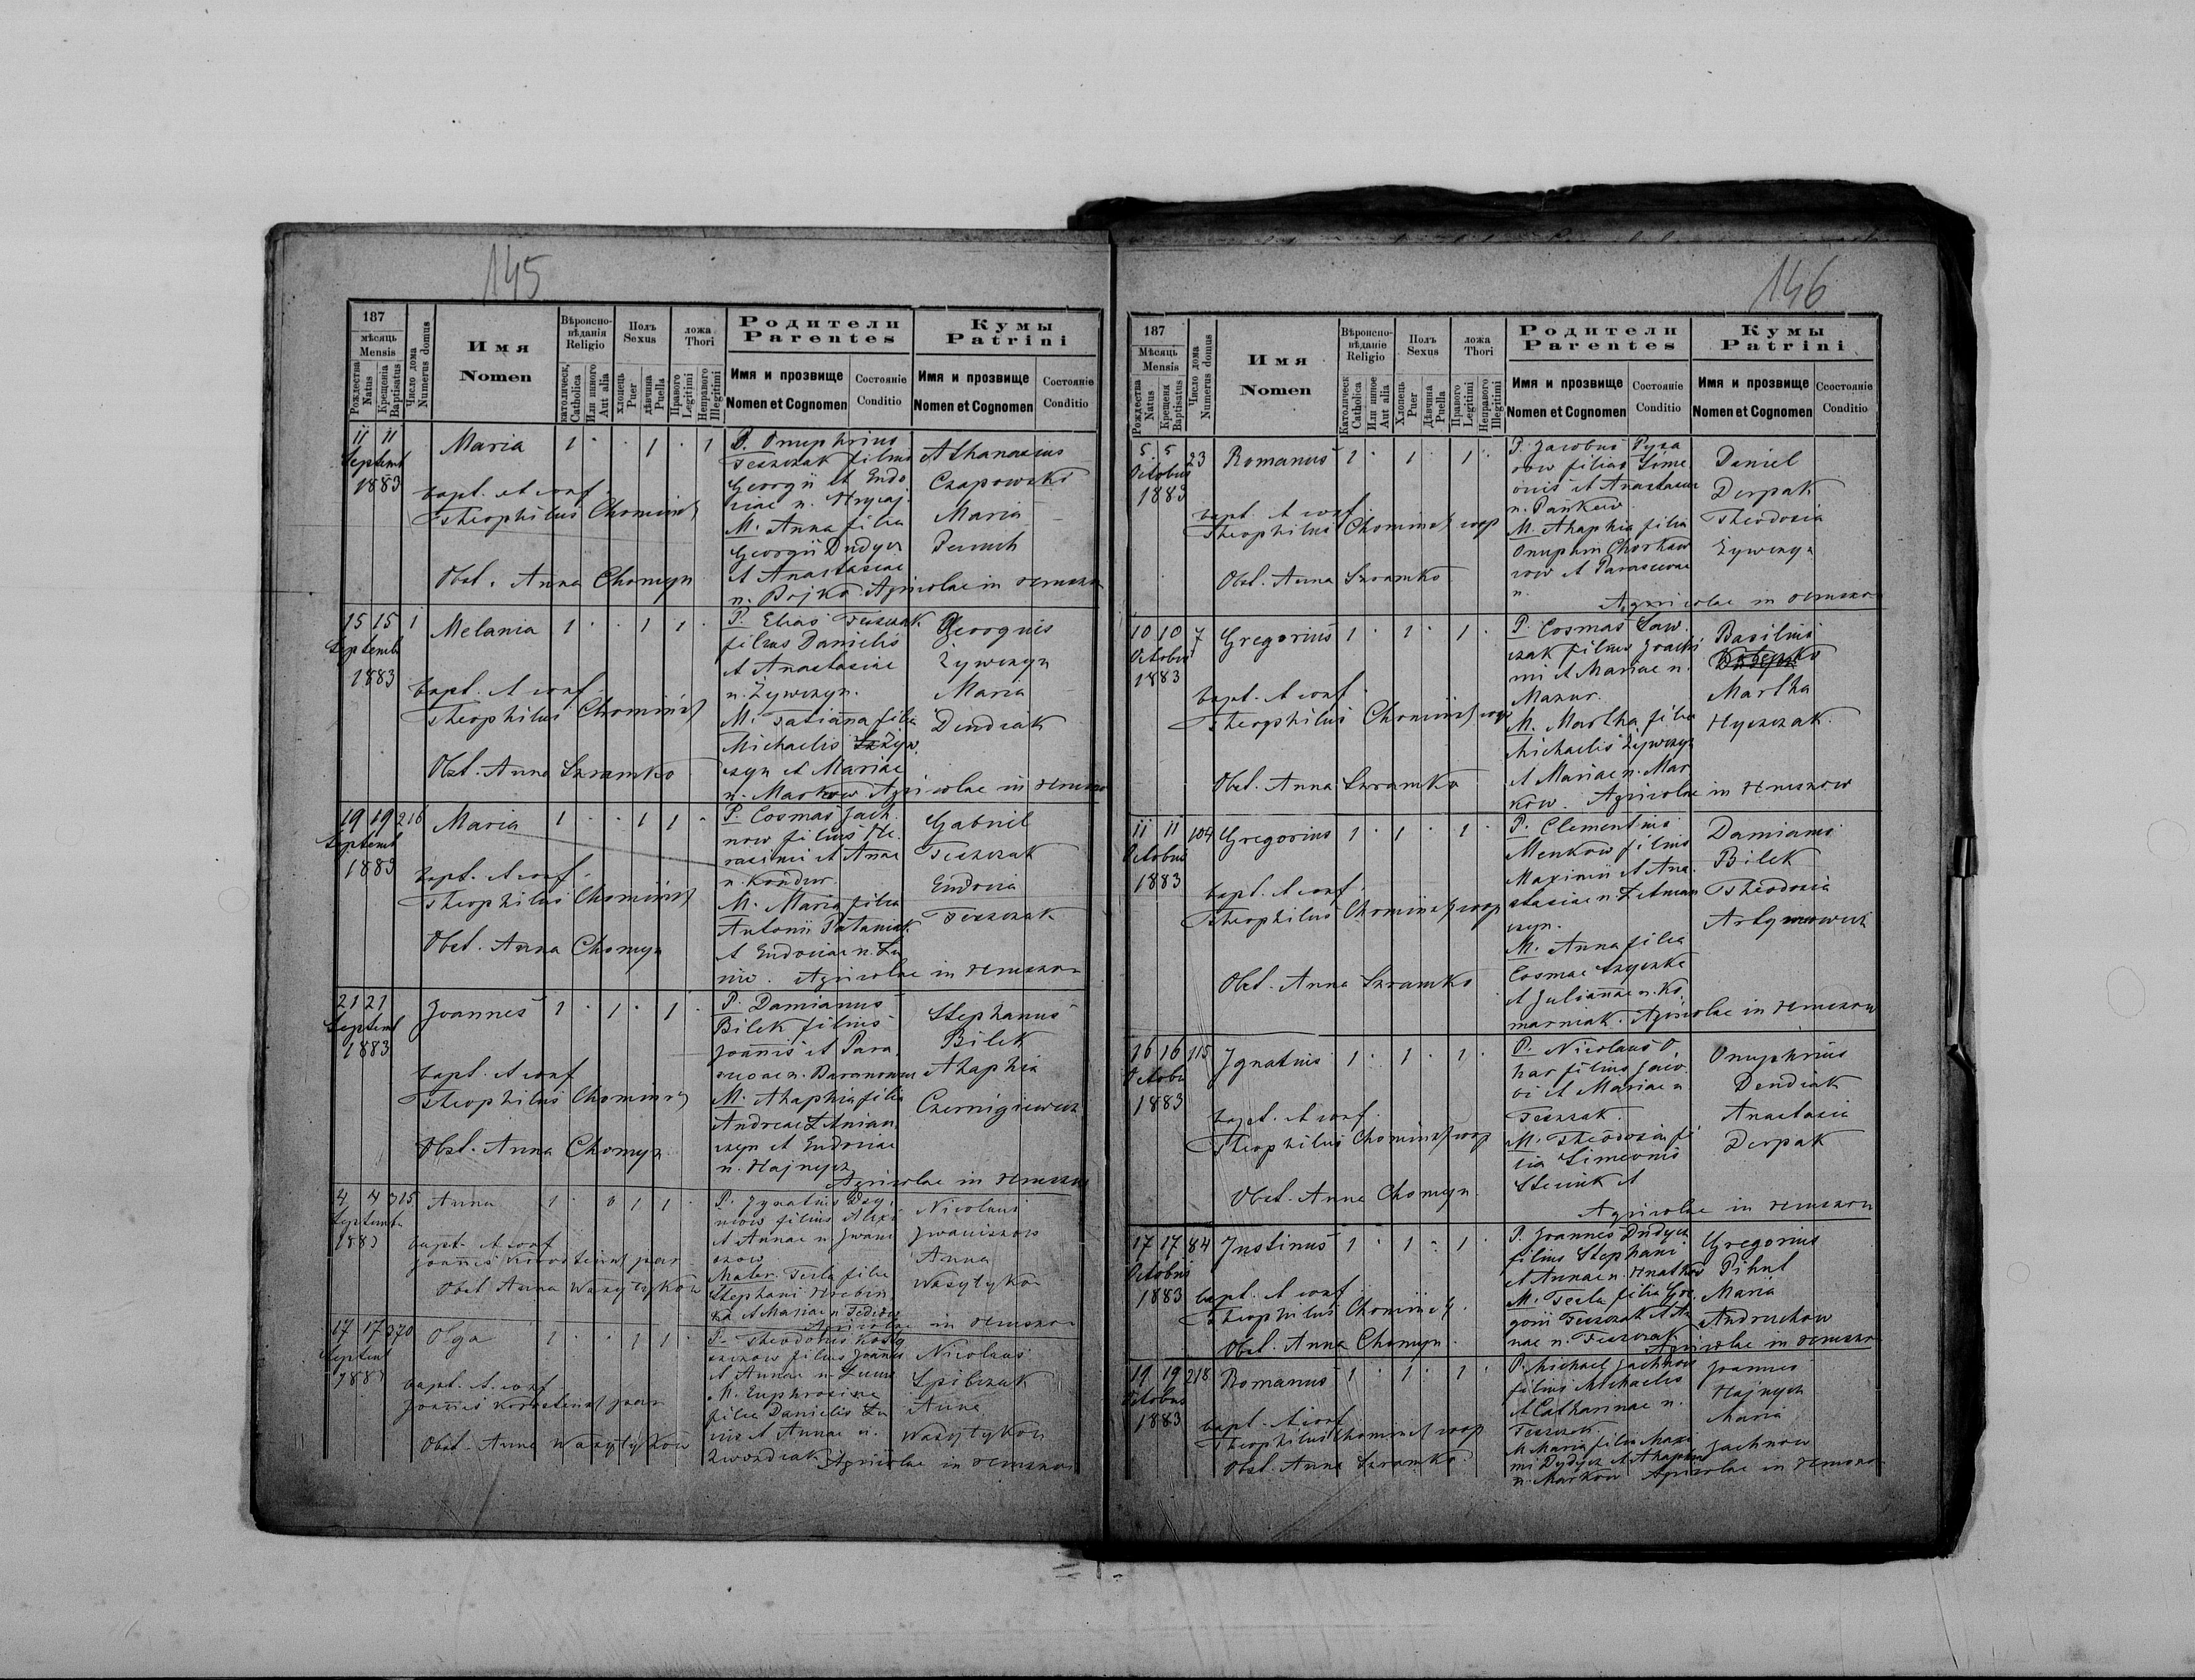 145
187
мѣсяць
Mensis
Рождества
Natus
Крещенія
Baptisatus
Число дома
Numerus domus
Имя
Nomen
Вѣроиспо-
вѣданія
Religio
католическ.
Catholica
Или иного
Aut alia
Полъ
Sexus
хлопець
Puer
дѣвчина
Puella
ложа
Thori
Правого
Legitimi
Неправого
Illegitimi
Родители
Parentes
Имя и прозвище
Nomen et Cognomen
Состояніе
Conditio
Кумы
Patrini
Имя и прозвище
Nomen et Cognomen
Состояніе
Conditio
11 11
Septemb
1883
Maria 1 1 1
bapt. et conf.
Theophilus Chomińs
Obst. Anna Chomyn
P. Onuphrius
Teszczak filius
Georgii et Eudo
n. Hrycaj
M. Anna filia
Georgii Dudycz
et Anastasiae
n. Bojko Agricolae in
Athanasius
Czapowski
Maria
15 15 1
Septemb
1883
Melania 1 1 1
bapt. et conf.
Theophilus Chomińs
Obst. Anna Szramko
P. Elias Teszczak
filius Danielis
et Anastasiae
n. Żywczyn.
M. Tatianna filia
Michaelis Żyw
czyn et Mariae
n. Markow Agricolae in
Georgius
Żywczyn
Maria
Dendiak
19 19 216
Septemb
1883
Maria 1 1 1
bapt. et conf.
Theophilus Chomińs
Obst. Anna Chomyn
P. Cosmas Jach
now filius He
rasimi et Annae
n. Kondur.
M. Maria filia
Antonii
et Eudociae n.
Agricolae in
Gabriel
Teszczak
Eudocia
Teszczak
21 21
Septemb
1883
Joannes 1 1 1
bapt. et conf
Theophilus Chomińs
Obst. Anna Chomyn
P. Damianus
Bilek filius
Joannis et Para
n.
M. Ahaphia filia
Andreae
czyn et Eudociae
n. Hajnycz
Agricolae in
Stephanus
Bilek
Ahaphia
4 4 315
Septemb
1883
Anna 1 0 1 1
bapt. et conf
Joannes par
Obst Anna Wasylykow
P. Ignatius
filius Alexi
et Annae n. Iwani
szow
Mater. Tecla filia
Stephani
et Mariae n.
Agricolae in
Nicolaus
Iwaniszow
Anna
Wasylykow
17 17 370
Septemb
1883
Olga 1 1 1
bapt. et conf
Joannes par
Obst. Anna Wasylykow
P. Theodorus
filius Joannis
et Annae n.
M. Euphrosine
filia Danielis
et Annae n.
Agricolae in
Nicolaus
Anna
Wasylykow
146
187
Мѣсяць
Mensis
Рождества
Natus
Крещеня
Baptisatus
Число дома
Numerus domus
Имя
Nomen
Вѣроиспо-
вѣданіе
Religio
Католическ
Catholica
Или иное
Aut alia
Полъ
Sexus
Хлопець
Puer
Дѣвчина
Puella
ложа
Thori
Правого
Legitimi
Неправого
Illegitimi
Родители
Parentes
Имя и прозвище
Nomen et Cognomen
Состояніе
Conditio
Кумы
Patrini
Имя и прозвище
Nomen et Cognomen
Ссостояніе
Conditio
5 5 23
Octobus
1883
Romanus 1 1 1
bapt. et conf.
Theophilus Chomińs coop
Obst. Anna Szramko
P. Jacobus
filius Sime
onis et Anastasiae
n. Pańkow
M. Ahaphia filia
Onuphrii
et Parascevae
n.
Agricolae in
Daniel
Derpak
Theodosia
Żywczyn
10 10 7
Octobus
1883
Gregorius 1 1 1
bapt. et conf.
Theophilus Chomińs coop
Obst. Anna Szramko
P. Cosmas Law
czak filius Joachi
mi et Mariae n.
Mazur.
M. Martha filia
Michaelis Żywczyn
et Mariae n. Mar
kow. Agricolae in
Basilius
Martha
Hyczak
11 11 104
Octobus
1883
Gregorius 1 1 1
bapt. et conf.
Theophilus Chomińs coop
Obst. Anna Szramko
P. Clementius
Menkow filius
Maximi et Ana
stasiae n.
czyn.
M. Anna filia
Cosmae
et Juliannae n. Ko
marniak. Agricolae in
Damianus
Bilek
Theodosia
16 16 115
Octobu
1883
Ignatius 1 1 1
bapt. et conf.
Theophilus Chomińs coop
Obst. Anna Chomyn
P. Nicolaus
filius Jaco
bi et Mariae n
Teszczak.
M. Theodosia fi
lia Simeonis
et
Agricolae in
Onuphrius
Dendiak
Anastasia
Derpak
17 17 84
Octobus
1883
Justinus 1 1 1
bapt. et conf
Theophilus Chomińs.
Obst. Anna Chomyn.
P. Joannes Dudycz
filius Stephani
et Annae n. Hnatkow
M. Tecla filia Gre
gorii Teszczak et An
nae n. Teszczak
Agricolae in
Gregorius
Pihut
Maria
Andruchow
19 19 218
Octobus
1883
Romanus 1 1 1
bapt. et conf
Theophilus Chomińs coop
Obst. Anna Szramko
P. Michael Jachnow
filius Michaelis
et Catharinae n.
Teszczak.
M. Maria filia Maxi
mi Dydycz et Ahaphiae
n. Markow Agricolae in
Joannes
Hajnycz
Maria
Jachnow